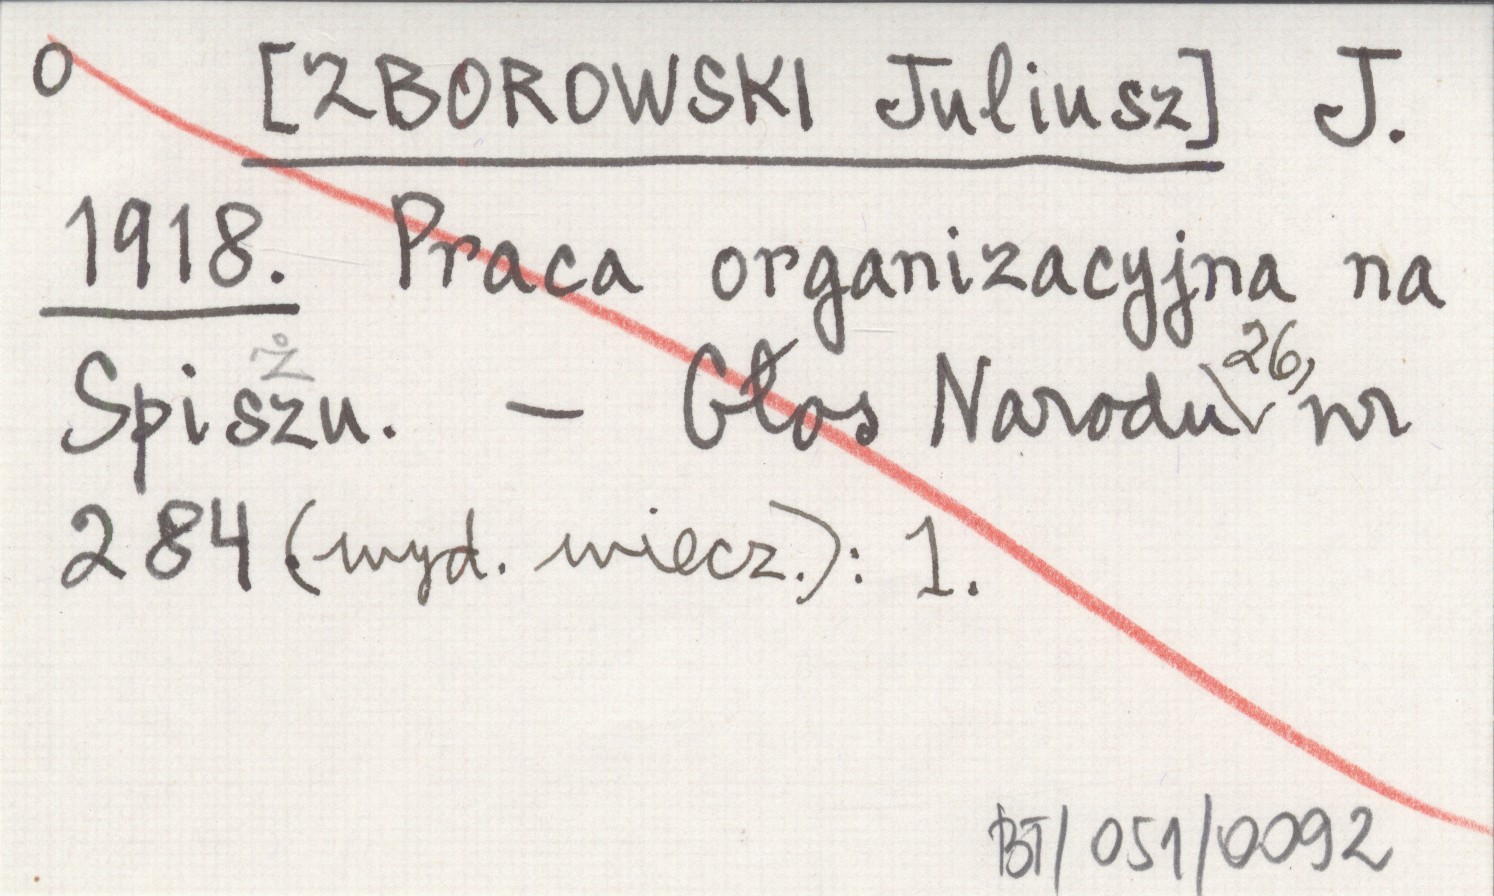 O [ZBOROWSKI Juliusz] J.
1918. Praca organizacyjna na
ż
Spiszu. — Głos Narodu 26, nr
284 (wyd. wiecz.): 1.
BT/051/0092